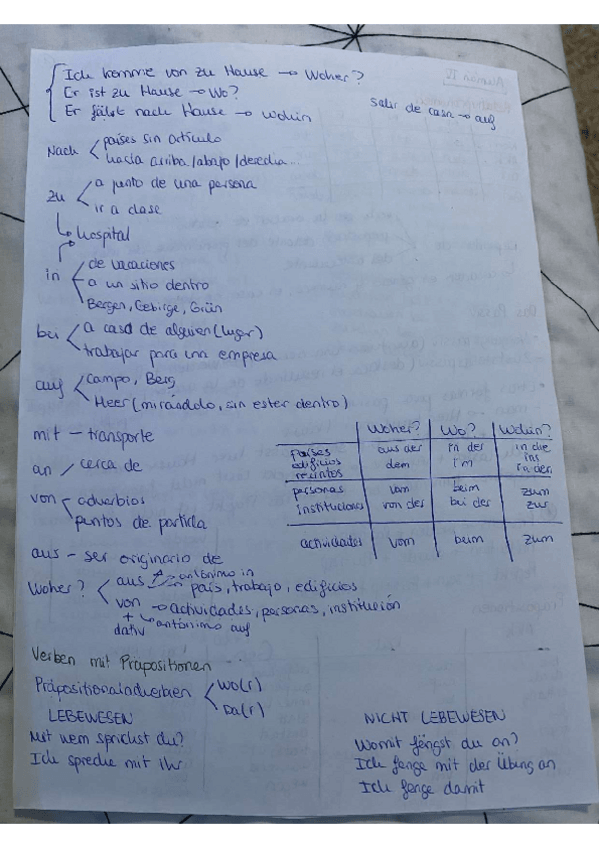 Ich komme von zu Hause → Woher?
Er ist zu Hause → Wo?
Er fährt nach Hause → Wohin
salir de casa → auf
Nach
países sin artículo
hacia arriba/abajo/derecha...
zu
a punto de una persona
ir a clase
hospital
in
de vacaciones
a un sitio dentro
Bergen, Gebirge, Grün
bei
a casa de alguien (lugar)
trabajar para una empresa
auf
campo, Berg
Meer (mirándolo, sin estar dentro)
mit – transporte
an / cerca de
von
adverbios
puntos de partida
Woher? Wo? Wohin?
países edificios recintos
aus der dem
in der im
in die ins in den
personas instituciones
vom von der
beim bei der
zum zur
actividades vom beim zum
aus – ser originario de
Woher?
aus → antónimo in
país, trabajo, edificios
von → actividades, personas, institución
+ dativ
→ antónimo auf
Verben mit Präpositionen
Präpositionaladverbien
Wo(r)
Da(r)
LEBEWESEN
Mit wem sprichst du?
Ich spreche mit ihr
NICHT LEBEWESEN
Womit fängst du an?
Ich fange mit der Übung an
Ich fange damit